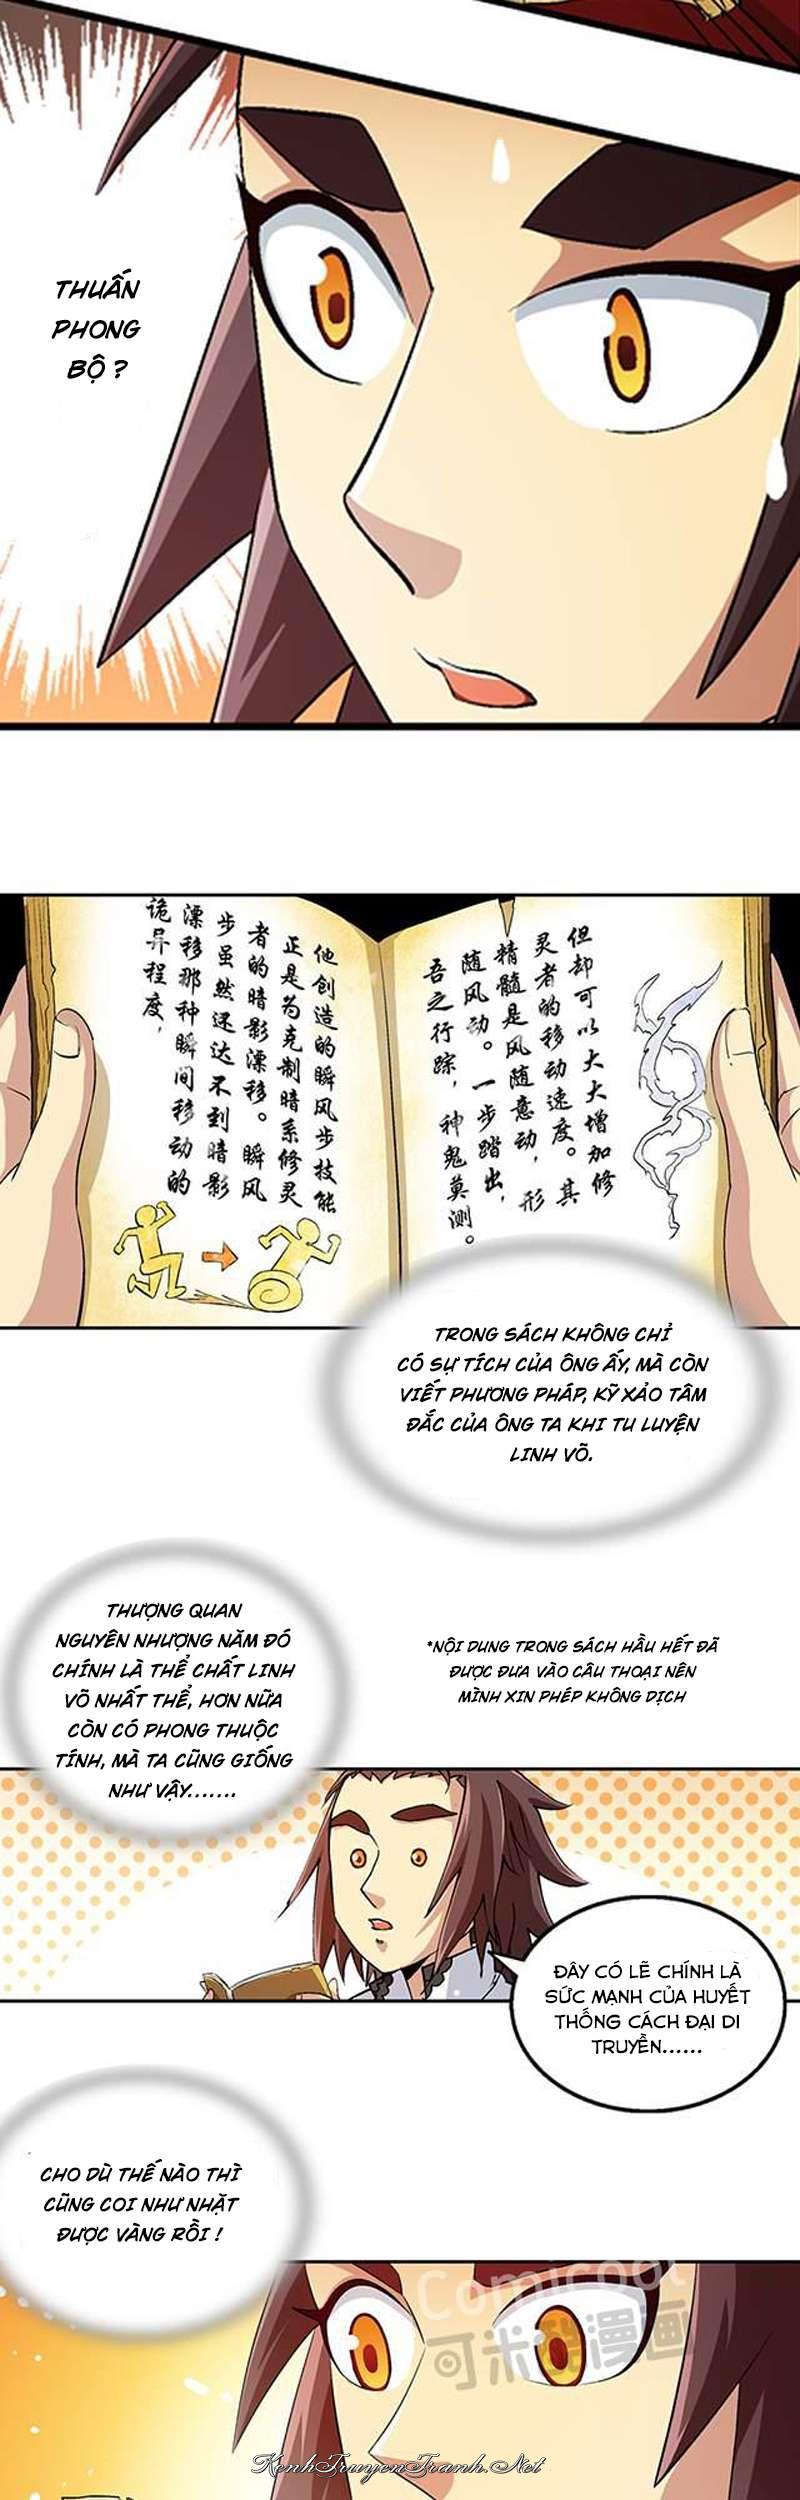 THUẤN
PHONG
BỘ ?
但却可以大大增加修
灵者的移动速度。其
精髓是风随意动，形
随风动。一步踏出，
吾之行踪，神鬼莫测。
他创造的瞬风步技能
正是为克制暗系修灵
者的暗影漂移。瞬风
步虽然还达不到暗影
漂移那种瞬间移动的
诡异程度，
TRONG SÁCH KHÔNG CHỈ
CÓ SỰ TÍCH CỦA ÔNG ẤY, MÀ CÒN
VIẾT PHƯƠNG PHÁP, KỸ XẢO TÂM
ĐẮC CỦA ÔNG TA KHI TU LUYỆN
LINH VÕ.
THƯỢNG QUAN
NGUYÊN NHƯỢNG NĂM ĐÓ
CHÍNH LÀ THỂ CHẤT LINH
VÕ NHẤT THỂ, HƠN NỮA
CÒN CÓ PHONG THUỘC
TÍNH, MÀ TA CŨNG GIỐNG
NHƯ VẬY.......
*NỘI DUNG TRONG SÁCH HẦU HẾT ĐÃ
ĐƯỢC ĐƯA VÀO CÂU THOẠI NÊN
MÌNH XIN PHÉP KHÔNG DỊCH
ĐÂY CÓ LẼ CHÍNH LÀ
SỨC MẠNH CỦA HUYẾT
THỐNG CÁCH ĐẠI DI
TRUYỀN......
CHO DÙ THẾ NÀO THÌ
CŨNG COI NHƯ NHẶT
ĐƯỢC VÀNG RỒI !
Comicool
可米酷漫画
KenhTruyenTranh.Net